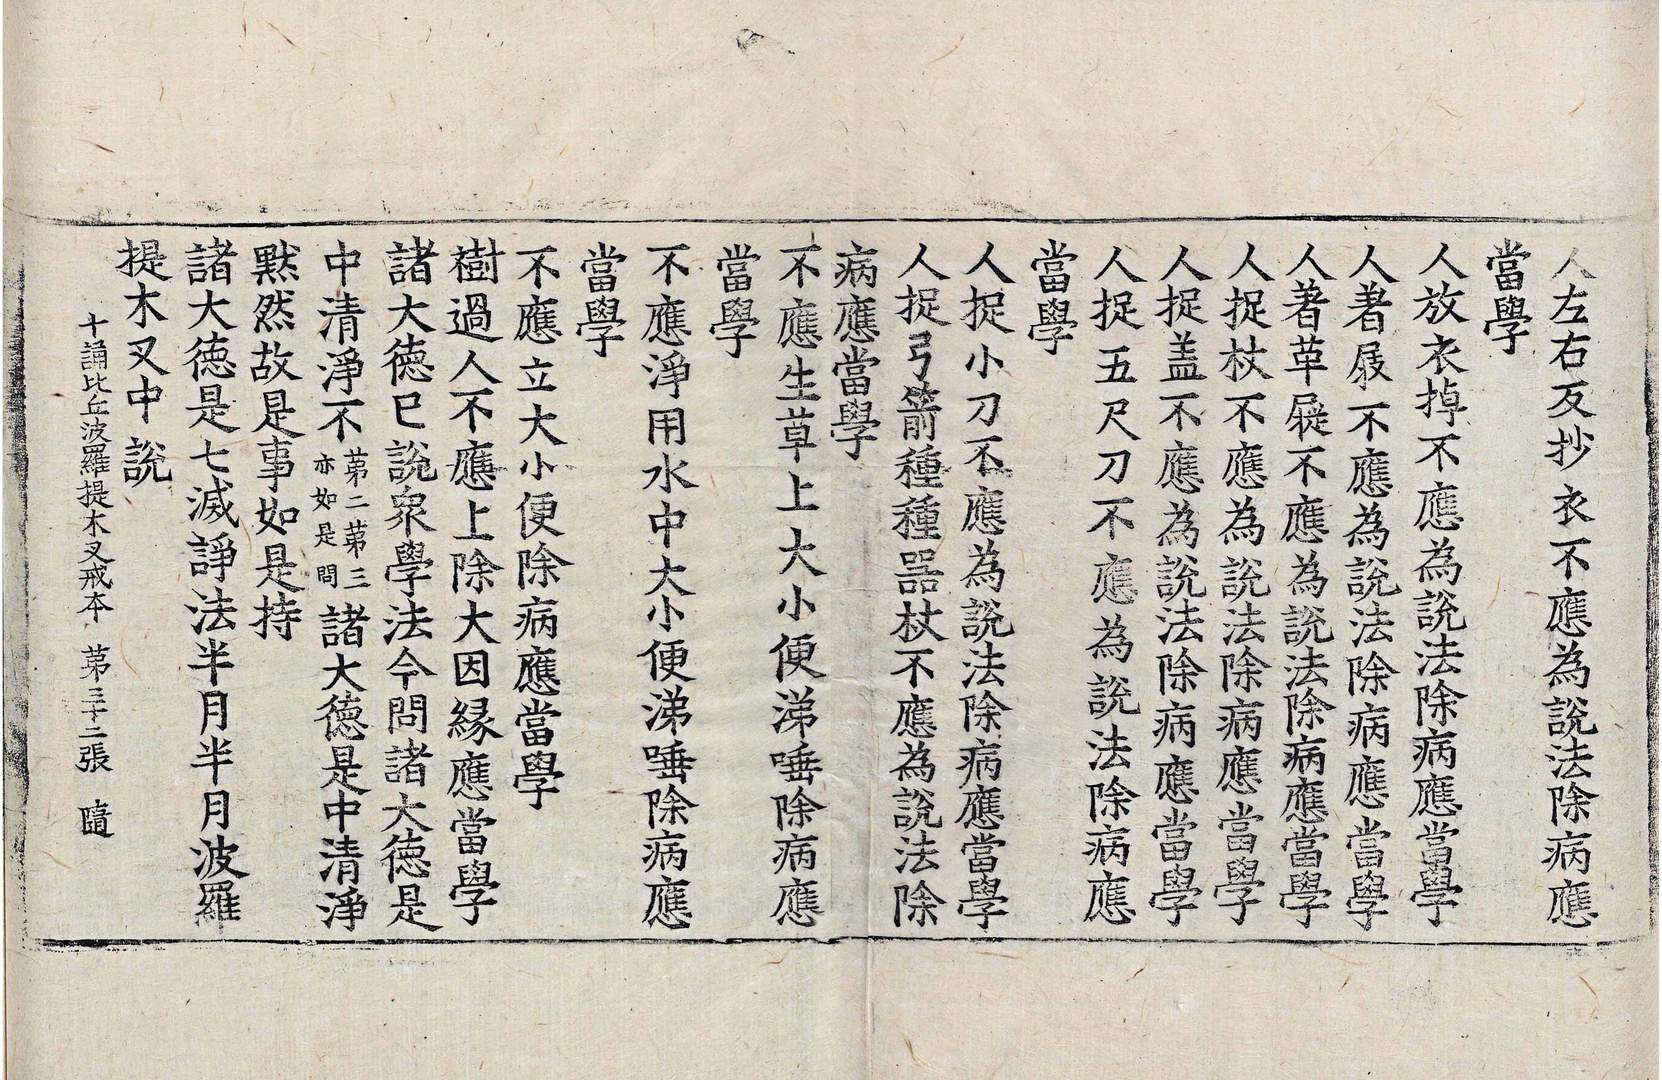 人左右反抄衣不應為說法除病應
當學
人放衣掉不應為說法除病應當學
人著屐不應為說法除病應當學
人著革屣不應為說法除病應當學
人捉杖不應為說法除病應當學
人捉盖不應為說法除病應當學
人捉五尺刀不應為說法除病應
當學
人捉小刀不應為說法除病應當學
人捉弓箭種種器杖不應為說法除
病應當學
不應生草上大小便涕唾除病應
當學
不應淨用水中大小便涕唾除病應
當學
不應立大小便除病應當學
樹過人不應上除大因緣應當學
諸大德已說衆學法今問諸大德是
中清淨不第二第三亦如是問諸大德是中清淨
黙然故是事如是持
諸大德是七滅諍法半月半月波羅
提木叉中說
十誦比丘波羅提木叉戒本 第三十二張 隨